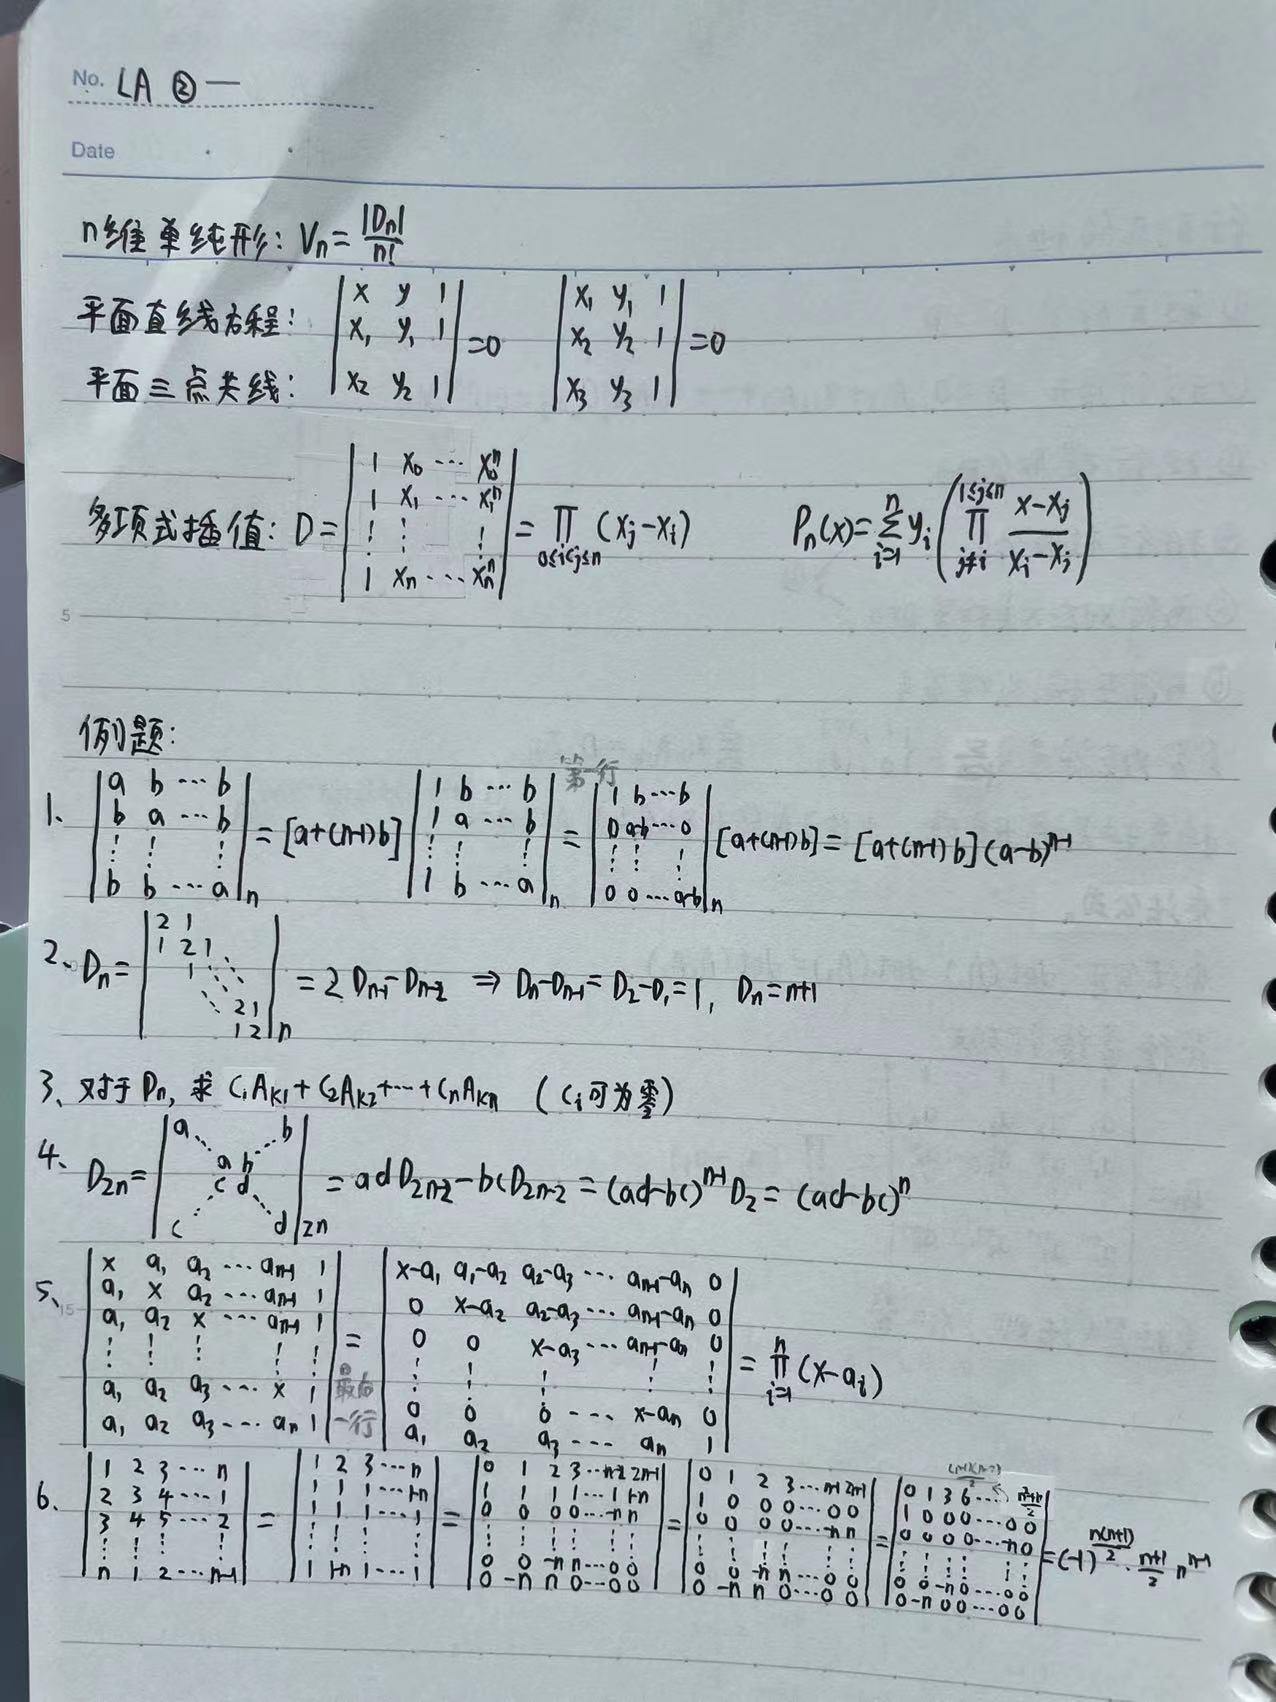 No. LA ② 一
Date
n维单纯形: Vn = |Dn| / n!
平面直线方程: | x y 1 ; x₁ y₁ 1 ; x₂ y₂ 1 | = 0
平面三点共线: | x₁ y₁ 1 ; x₂ y₂ 1 ; x₃ y₃ 1 | = 0
多项式插值: D = | 1 x₀ ⋯ x₀ⁿ ; 1 x₁ ⋯ x₁ⁿ ; ⋮ ⋮ ⋮ ; 1 xₙ ⋯ xₙⁿ | = ∏_{0≤i<j≤n} (xⱼ-xᵢ) Pₙ(x) = ∑_{i=1}^{n} yᵢ ( ∏_{j≠i}^{1≤j≤n} (x-xⱼ)/(xᵢ-xⱼ) )
5
例题:
1、 | a b ⋯ b ; b a ⋯ b ; ⋮ ⋮ ⋮ ; b b ⋯ a |ₙ = [a+(n-1)b] | 1 b ⋯ b ; 1 a ⋯ b ; ⋮ ⋮ ⋮ ; 1 b ⋯ a |ₙ = 第一行 | 1 b ⋯ b ; 0 a-b ⋯ 0 ; ⋮ ⋮ ⋮ ; 0 0 ⋯ a-b |ₙ [a+(n-1)b] = [a+(n-1)b](a-b)ⁿ⁻¹
2、 Dn = | 2 1 ; 1 2 1 ; 1 ⋱ ⋱ ; ⋱ 2 1 ; 1 2 |ₙ = 2Dn-1 - Dn-2 ⇒ Dn - Dn-1 = D₂ - D₁ = 1, Dn = n+1
3、对于Dn, 求 C₁Ak1 + C₂Ak2 + ⋯ + CnAkn (Ci可为零)
4、 D2n = | a b ; ⋱ ⋰ ; a b ; c d ; ⋰ ⋱ ; c d |2n = adD2n-2 - bcD2n-2 = (ad-bc)ⁿ⁻¹D₂ = (ad-bc)ⁿ
5、 | x a₁ a₂ ⋯ an-1 1 ; a₁ x a₂ ⋯ an-1 1 ; a₁ a₂ x ⋯ an-1 1 ; ⋮ ⋮ ⋮ ⋮ ⋮ ; a₁ a₂ a₃ ⋯ x 1 ; a₁ a₂ a₃ ⋯ an 1 | = 最后一行 | x-a₁ a₁-a₂ a₂-a₃ ⋯ an-1-an 0 ; 0 x-a₂ a₂-a₃ ⋯ an-1-an 0 ; 0 0 x-a₃ ⋯ an-1-an 0 ; ⋮ ⋮ ⋮ ⋮ ⋮ ; 0 0 0 ⋯ x-an 0 ; a₁ a₂ a₃ ⋯ an 1 | = ∏_{i=1}^{n} (x-aᵢ)
15
6、 | 1 2 3 ⋯ n ; 2 3 4 ⋯ 1 ; 3 4 5 ⋯ 2 ; ⋮ ⋮ ⋮ ⋮ ; n 1 2 ⋯ n-1 | = | 1 2 3 ⋯ n ; 1 1 1 ⋯ 1-n ; 1 1 1 ⋯ 1 ; ⋮ ⋮ ⋮ ⋮ ; 1 1-n 1 ⋯ 1 | = | 0 1 2 3 ⋯ n-2 2n-1 ; 1 1 1 1 ⋯ 1 1-n ; 0 0 0 0 ⋯ -n n ; ⋮ ⋮ ⋮ ⋮ ; 0 0 -n n ⋯ 0 0 ; 0 -n n 0 ⋯ 0 0 | = | 0 1 2 3 ⋯ n-2 2n-1 ; 1 0 0 0 ⋯ 0 0 ; 0 0 0 0 ⋯ -n n ; ⋮ ⋮ ⋮ ⋮ ; 0 0 -n n ⋯ 0 0 ; 0 -n n 0 ⋯ 0 0 | = | 0 1 3 6 ⋯ (n-1)(n-2)/2 (n²+n)/2 ; 1 0 0 0 ⋯ 0 0 ; 0 0 0 0 ⋯ -n 0 ; ⋮ ⋮ ⋮ ⋮ ; 0 0 -n 0 ⋯ 0 0 ; 0 -n 0 0 ⋯ 0 0 | = (-1)^{n(n+1)/2} · (n+1)/2 nⁿ⁻¹